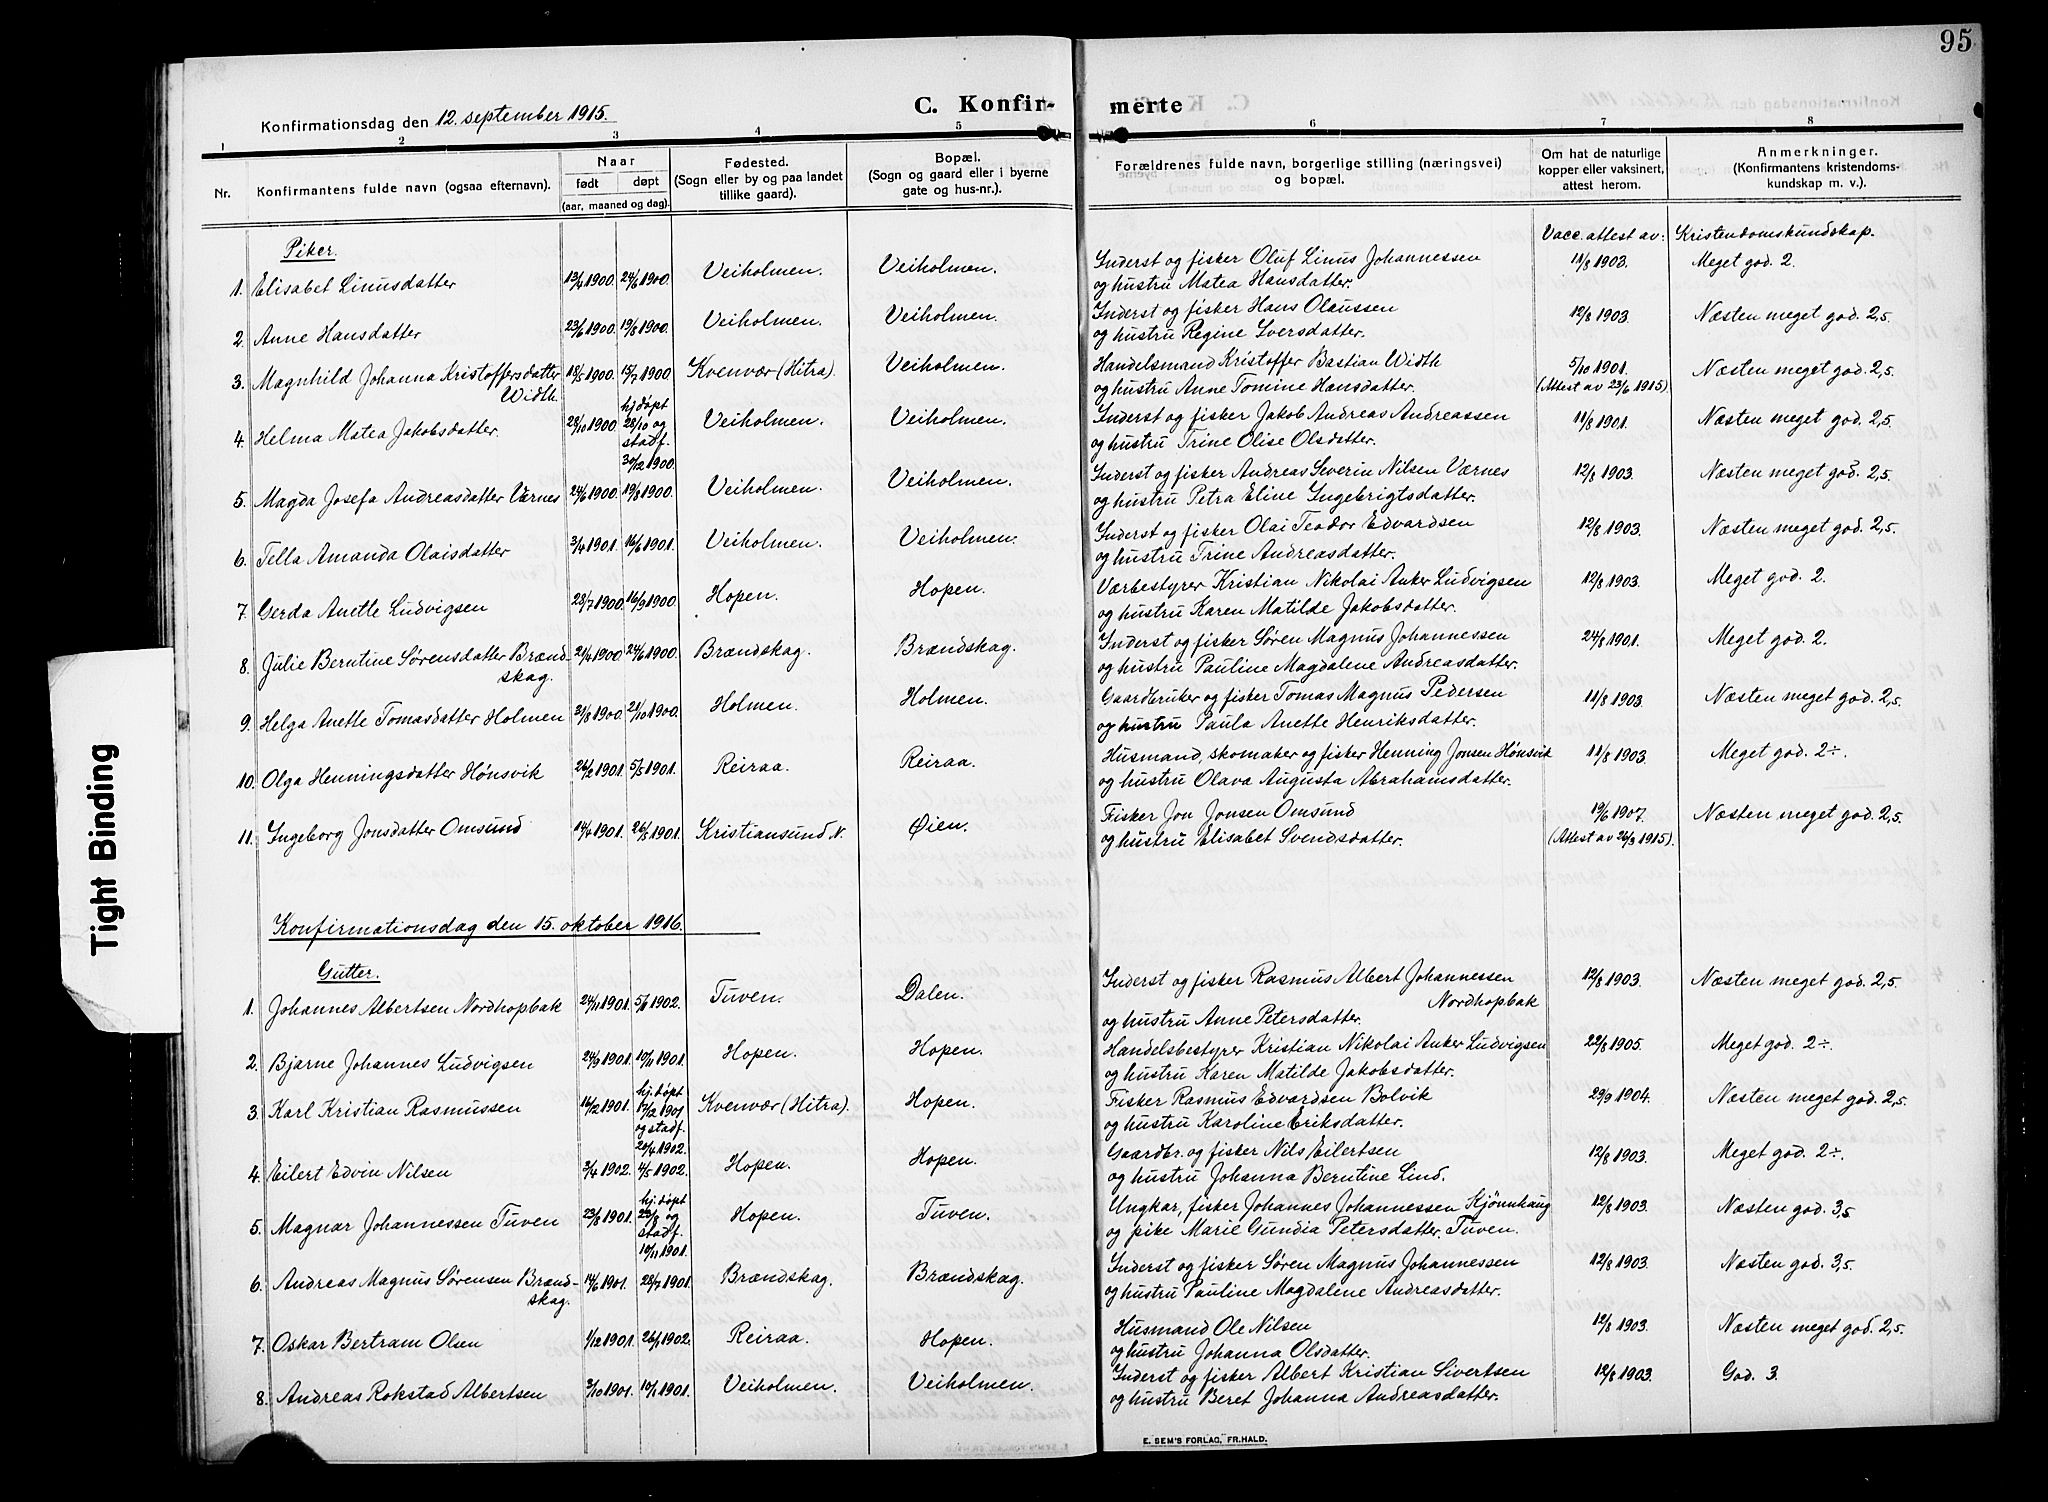 95
Konfirmationsdag den 12. september 1915.
C. Konfir-
merte
1 2 3 4 5 6 7 8
Nr.
Konfirmantens fulde navn (ogsaa efternavn).
Naar
født døpt
(aar, maaned og dag).
Fødested.
(Sogn eller by og paa landet
tillike gaard).
Bopæl.
(Sogn og gaard eller i byerne
gate og hus-nr.).
Forældrenes fulde navn, borgerlige stilling (næringsvei)
og bopæl.
Om hat de naturlige
kopper eller vaksinert,
attest herom.
Anmerkninger.
(Konfirmantens kristendoms-
kundskap m. v.).
Vacc. attest av: Kristendomskundskap.
Piker.
1. Elisabet Linusdatter 13/4 1900. 24/6 1900. Veiholmen. Veiholmen. Inderst og fisker Oluf Linus Johannessen 11/8 1903. Meget god. 2.
og hustru Matea Hansdatter.
2. Anne Hansdatter 23/6 1900. 19/8 1900. Veiholmen. Veiholmen. Inderst og fisker Hans Olaussen 12/8 1903. Næsten meget god. 2,5.
og hustru Regine Iversdatter.
3. Magnhild Johanna Kristoffersdatter 18/5 1900. 15/7 1900. Kvenvær (Hitra). Veiholmen. Handelsmand Kristoffer Bastian Width 5/10 1901. Næsten meget god. 2,5.
Width. og hustru Anne Tomine Hansdatter. (Attest av 23/6 1915)
4. Helma Matea Jakobsdatter. 28/10 1900. hj. døpt Veiholmen. Veiholmen. Inderst og fisker Jakob Andreas Andreassen 11/8 1901. Næsten meget god. 2,5.
28/10 og
stadf.
30/12 1900.
og hustru Trine Olise Olsdatter.
5. Magda Josefa Andreasdatter Værnes 24/6 1900. 19/8 1900. Veiholmen. Veiholmen. Inderst og fisker Andreas Severin Nilsen Værnes 12/8 1903. Næsten meget god. 2,5
og hustru Petra Eline Ingebrigtsdatter.
6. Tella Amanda Olaisdatter 3/4 1901. 16/6 1901. Veiholmen. Veiholmen. Inderst og fisker Olai Teodor Edvardsen 12/8 1903. Næsten meget god. 2,5.
og hustru Trine Andreasdatter.
7. Gerda Anette Ludvigsen 28/7 1900. 16/9 1900. Hopen. Hopen. Værbestyrer Kristian Nikolai Anker Ludvigsen 12/8 1903. Meget god. 2.
og hustru Karen Matilde Jakobsdatter.
8. Julie Berntine Sørensdatter Brænd- 21/4 1900. 24/6 1900. Brændskag. Brændskag. Inderst og fisker Søren Magnus Johannessen 24/8 1901. Meget god. 2.
skag. og hustru Pauline Magdalene Andreasdatter.
9. Helga Anette Tomasdatter Holmen 31/8 1900. 21/10 1900. Holmen. Holmen. Gaardbruker og fisker Tomas Magnus Pedersen 11/8 1903. Næsten meget god. 2,5.
og hustru Paula Anette Henriksdatter.
10. Olga Henningsdatter Hønsvik 26/2 1901. 5/5 1901. Reiraa. Reiraa. Husmand, skomaker og fisker Henning Jonsen Hønsvik 11/8 1903. Meget god. 2÷.
og hustru Olava Augusta Abrahamsdatter.
11. Ingeborg Jonsdatter Omsund 14/4 1901. 26/5 1901. Kristiansund N. Øien. Fisker Jon Jonsen Omsund 19/6 1907. Næsten meget god. 2,5.
og hustru Elisabet Svendsdatter. (Attest av 26/3 1915).
Konfirmationsdag den 15. oktober 1916.
Gutter.
1. Johannes Albertsen Nordhopbak 24/11 1901. 1902. Tuven. Dalen. Inderst og fisker Rasmus Albert Johannessen 12/8 1903. Næsten meget god. 2,5.
Nordhopbak
og hustru Anne Petersdatter.
2. Bjarne Johannes Ludvigsen 24/9 1901. 10/11 1901. Hopen. Hopen. Handelsbestyrer Kristian Nikolai Anker Ludvigsen 22/8 1905. Meget god. 2÷.
og hustru Karen Matilde Jakobsdatter.
3. Karl Kristian Rasmussen 16/12 1901. hj. døpt Kvenvær (Hitra). Hopen. Fisker Rasmus Edvardsen Bolvik 29/9 1904. Næsten meget god. 2,5.
17/12 1901
og stadf.
20/4 1902.
og hustru Karoline Eriksdatter.
4. Eilert Edvin Nilsen 3/4 1902. 4/5 1902. Hopen. Hopen. Gaardbr. og fisker Nils Eilertsen 12/8 1903. Meget god. 2÷.
og hustru Johanna Berntine Lind.
5. Magnar Johannessen Tuven 23/8 1901. hj. døpt Hopen. Tuven. Ungkar, fisker Johannes Johannessen Kjønnhaug 12/8 1903. Næsten god. 3,5
23/8 og
stadf.
10/11 1901.
og pike Marie Gundia Petersdatter Tuven.
6. Andreas Magnus Sørensen Brænd- 14/6 1901. 28/7 1901. Brændskag. Brændskag. Inderst og fisker Søren Magnus Johannessen 12/8 1903. Næsten god. 3,5.
skag. og hustru Pauline Magdalene Andreasdatter.
7. Oskar Bertram Olsen 1/12 1901. 26/1 1902. Reiraa. Hopen. Husmand Ole Nilsen 12/8 1903. Næsten meget god. 2,5.
og hustru Johanna Olsdatter.
8. Andreas Rokstad Albertsen 3/10 1901. 10/11 1901. Veiholmen. Veiholmen. Inderst og fisker Albert Kristian Sivertsen 12/8 1903. God. 3.
og hustru Beret Johanna Andreasdatter.
E. SEM'S FORLAG, FR.HALD.
Tight Binding